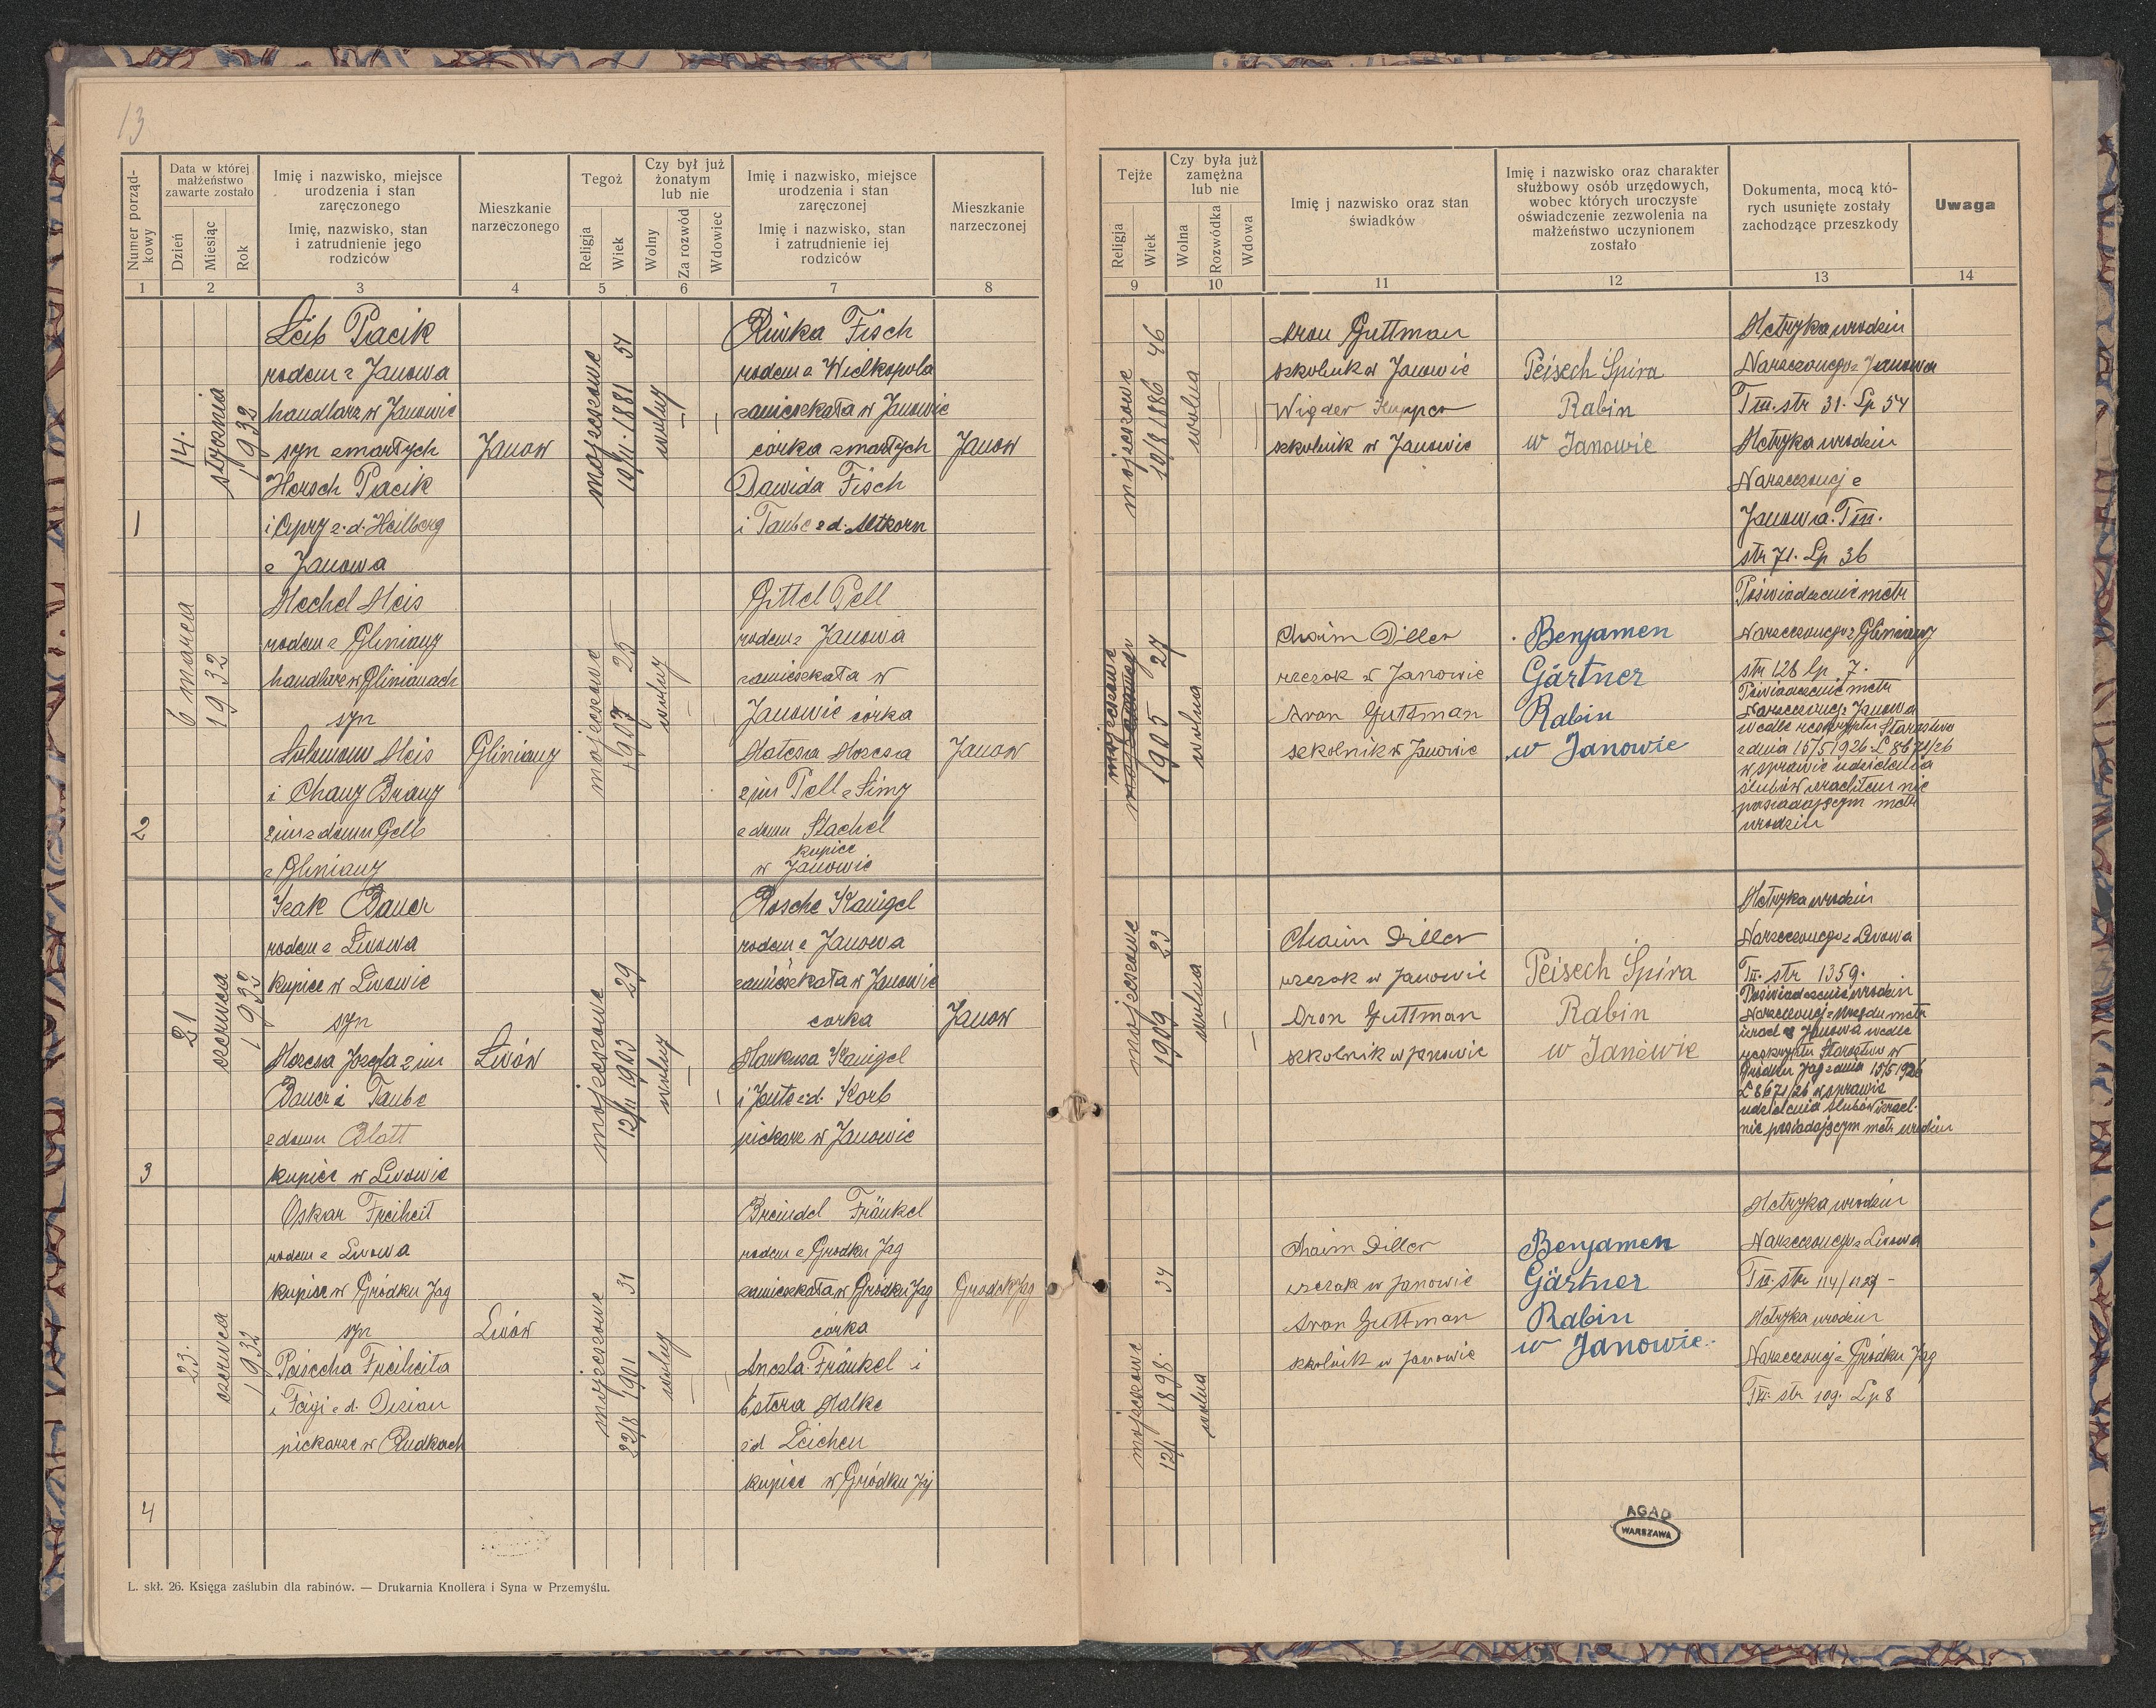 13
Numer porząd-
kowy
Data w której
małżeństwo
zawarte zostało
Dzień
Miesiąc
Rok
Imię i nazwisko, miejsce
urodzenia i stan
zaręczonego
Imię, nazwisko, stan
i zatrudnienie jego
rodziców
Mieszkanie
narzeczonego
Tegoż
Religja
Wiek
Czy był już
żonatym
lub nie
Wolny
Za rozwód
Wdowiec
Imię i nazwisko, miejsce
urodzenia i stan
zaręczonej
Imię, nazwisko, stan
i zatrudnienie iej
rodziców
Mieszkanie
narzeczonej
1 2 3 4 5 6 7 8
Tejże
Religja
Wiek
Czy była już
zamężna
lub nie
Wolna
Rozwódka
Wdowa
Imię j nazwisko oraz stan
świadków
Imię i nazwisko oraz charakter
służbowy osób urzędowych,
wobec których uroczyste
oświadczenie zezwolenia na
małżeństwo uczynionem
zostało
Dokumenta, mocą któ-
rych usunięte zostały
zachodzące przeszkody
Uwaga
9 10 11 12 13 14
1
14.
stycznia
1932
Leib Pacik
rodem z Janowa
handlarz w Janowie
syn zmarłych
Hersch Pacik
z. d. Heilberg
z Janowa
Janow
mojzeszowe
10/11.1881 51
wolny
Riwka Fisch
rodem z Wielkopola
zamieszkała w Janowie
córka zmarłych
Dawida Fisch
i Taube z d. Altkorn
Janow
mojzeszowe
10/8 1886 46
wolna
Aron Guttman
szkolnik w Janowie
Wigder Kupper
szkolnik w Janowie
Peisech Spira
Rabin
w Janowie
Metryka urodzin
Narzeczonego z Janowa
T III. str 31. Lp 54
Metryka urodzin
Narzeczonej z
Janowa. T III.
str 71. Lp 36
2
6 marca
1932
Mechel Meis
rodem z Gliniany
handlarz w Glinianach
syn
Salomow Meis
i Chany Brany
2 im z domu Gelb
z Gliniany
Gliniany
mojzeszowe
1907 25
wolny
Gittel Pell
rodem z Janowa
zamieszkała w
Janowie córka
Matesza Mozesza
2 im Pell z Simy
z domu Stachel
kupiec
w Janowie
Janow
mojzeszowe
1905 27
wolna
Chaim Diller
rzezak w Janowie
Aron Guttman
szkolnik w Janowie
Benjamen
Gärtner
Rabin
w Janowie
Poświadczenie metr
Narzeczonego z Gliniany
str 126 Lp 7.
Poświadczenie metr
Narzeczonej z Janowa
wedle reskryptu Starostwa
z dnia 15/5 1926 L 8671/26
w sprawie udzielania
ślubów izraelitom nie
posiadającym metr
urodzin
3
21
czerwca
1932
Izak Bauer
rodem z Lwowa
kupiec w Lwowie
syn
Mozesa Josefa 2 im
Bauer i Taube
z domu Blatt
kupiec w Lwowie
Lwów
mojzeszowe
12/11 1903 29
wolny
Rosche Kanigel
rodem z Janowa
zamieszkała w Janowie
corka
Markusa Kanigel
i Jente z d. Korb
piekarz w Janowie
Janow
mojzeszowe
1909 23
wolna
Chaim Diller
rzezak w Janowie
Aron Guttman
szkolnik w Janowie
Peisech Spira
Rabin
w Janowie
Metryka urodzin
Narzeczonego z Lwowa
T III. str 1359.
Poświadczenie urodzin
Narzeczonej z Urzędu metr
izrael z Janowa wedle
reskryptu Starostwa w
Gródku Jag z dnia 15/5 1926
L 8671/26 w sprawie
udzielenia ślubów izrael.
nie posiadającym metr urodzin
4
23.
czerwca
1932
Oskar Freiheit
rodem z Lwowa
kupiec w Gródku Jag
syn
Peisecha Freiheita
i Feigi z d. Dizian
piekarz w Rudkach
Lwów
mojzeszowe
22/8 1901 31
wolny
Breindel Fränkel
rodem z Grodku Jag
zamieszkała w Gródku Jag
córka
Anczla Fränkel i
Estera Malke
z d Leichen
kupiec w Gródku Jg
Grodek Jag
mojzeszowe
12/1 1898. 34
wolna
Chaim Diller
rzezak w Janowie
Aron Guttman
szkolnik w Janowie
Benjamen
Gärtner
Rabin
w Janowie.
Metryka urodzin
Narzeczonego z Lwowa
Metryka urodzin
Narzeczonej z Gródku Jag
T III. str 109. Lp 8
AGAD
WARSZAWA
L. skł. 26. Księga zaślubin dla rabinów. — Drukarnia Knollera i Syna w Przemyślu.